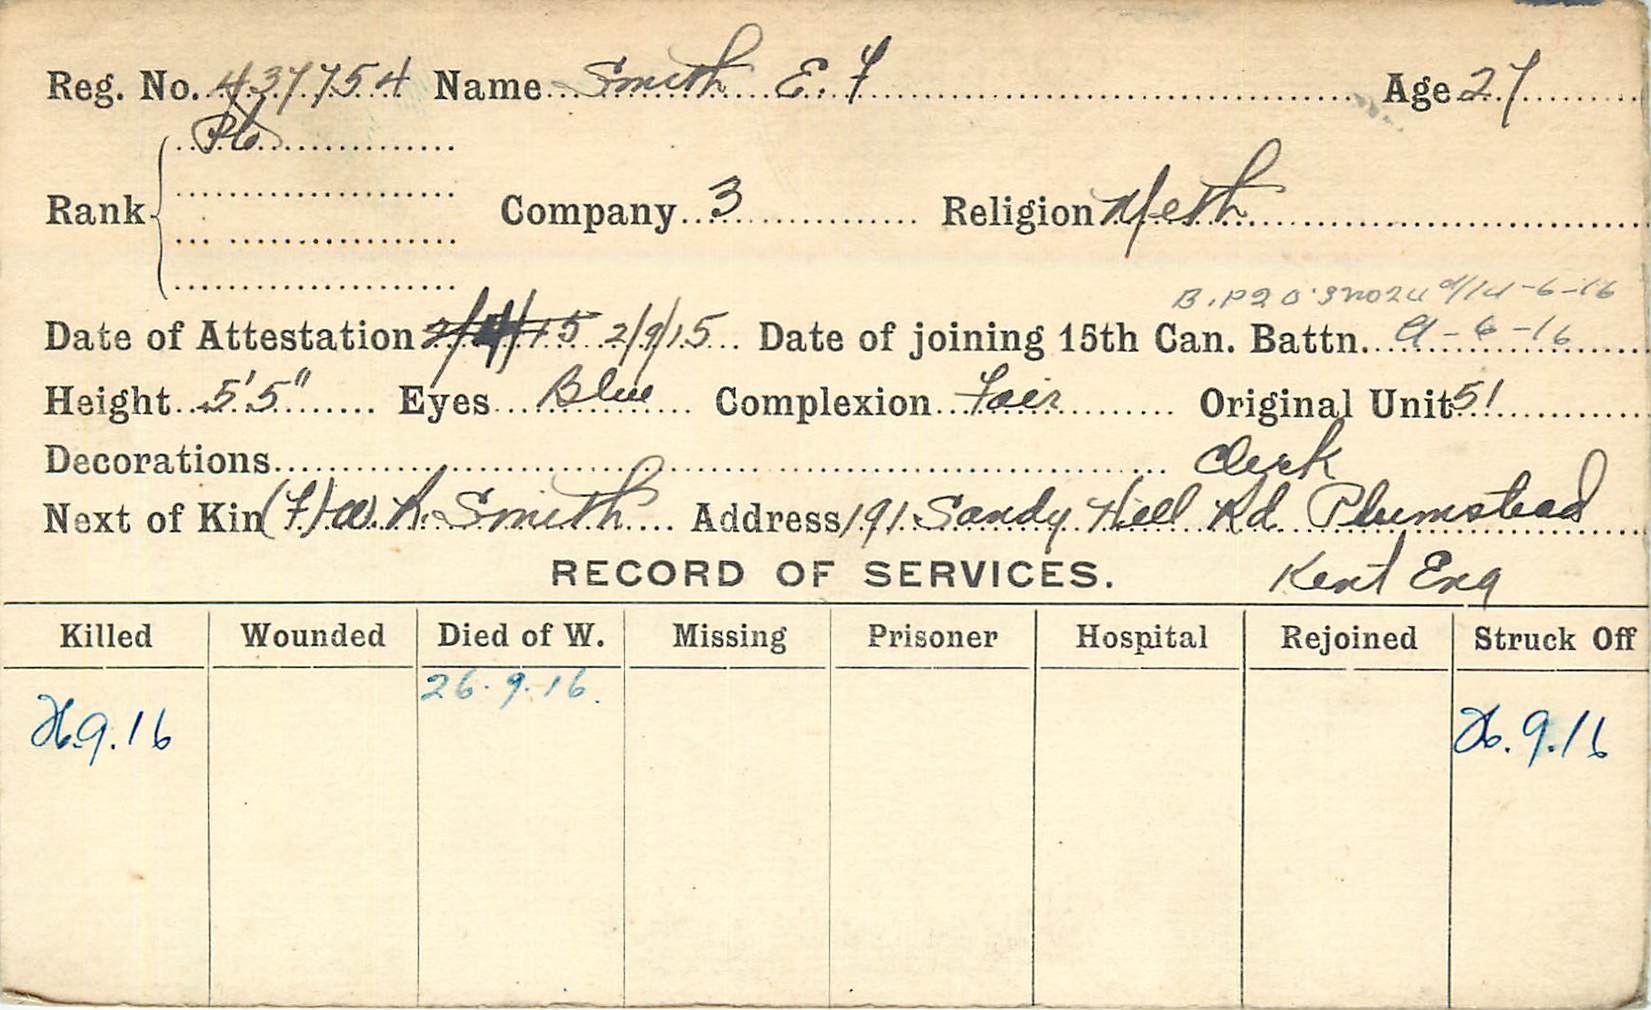 Reg. No. 437754 Name Smith E. F Age 27
Pte
Rank Company 3 Religion Meth
14-6-16
Date of Attestation 2/9/15 Date of joining 15th Can. Battn. 9-6-16
Height 5'5" Eyes Blue Complexion Fair Original Unit 51
Decorations Clerk
Next of Kin (F) W. R. Smith Address 191 Sandy Hill Rd Plumstead
RECORD OF SERVICES. Kent Eng
Killed Wounded Died of W. Missing Prisoner Hospital Rejoined Struck Off
26.9.16.
26.9.16 26.9.16